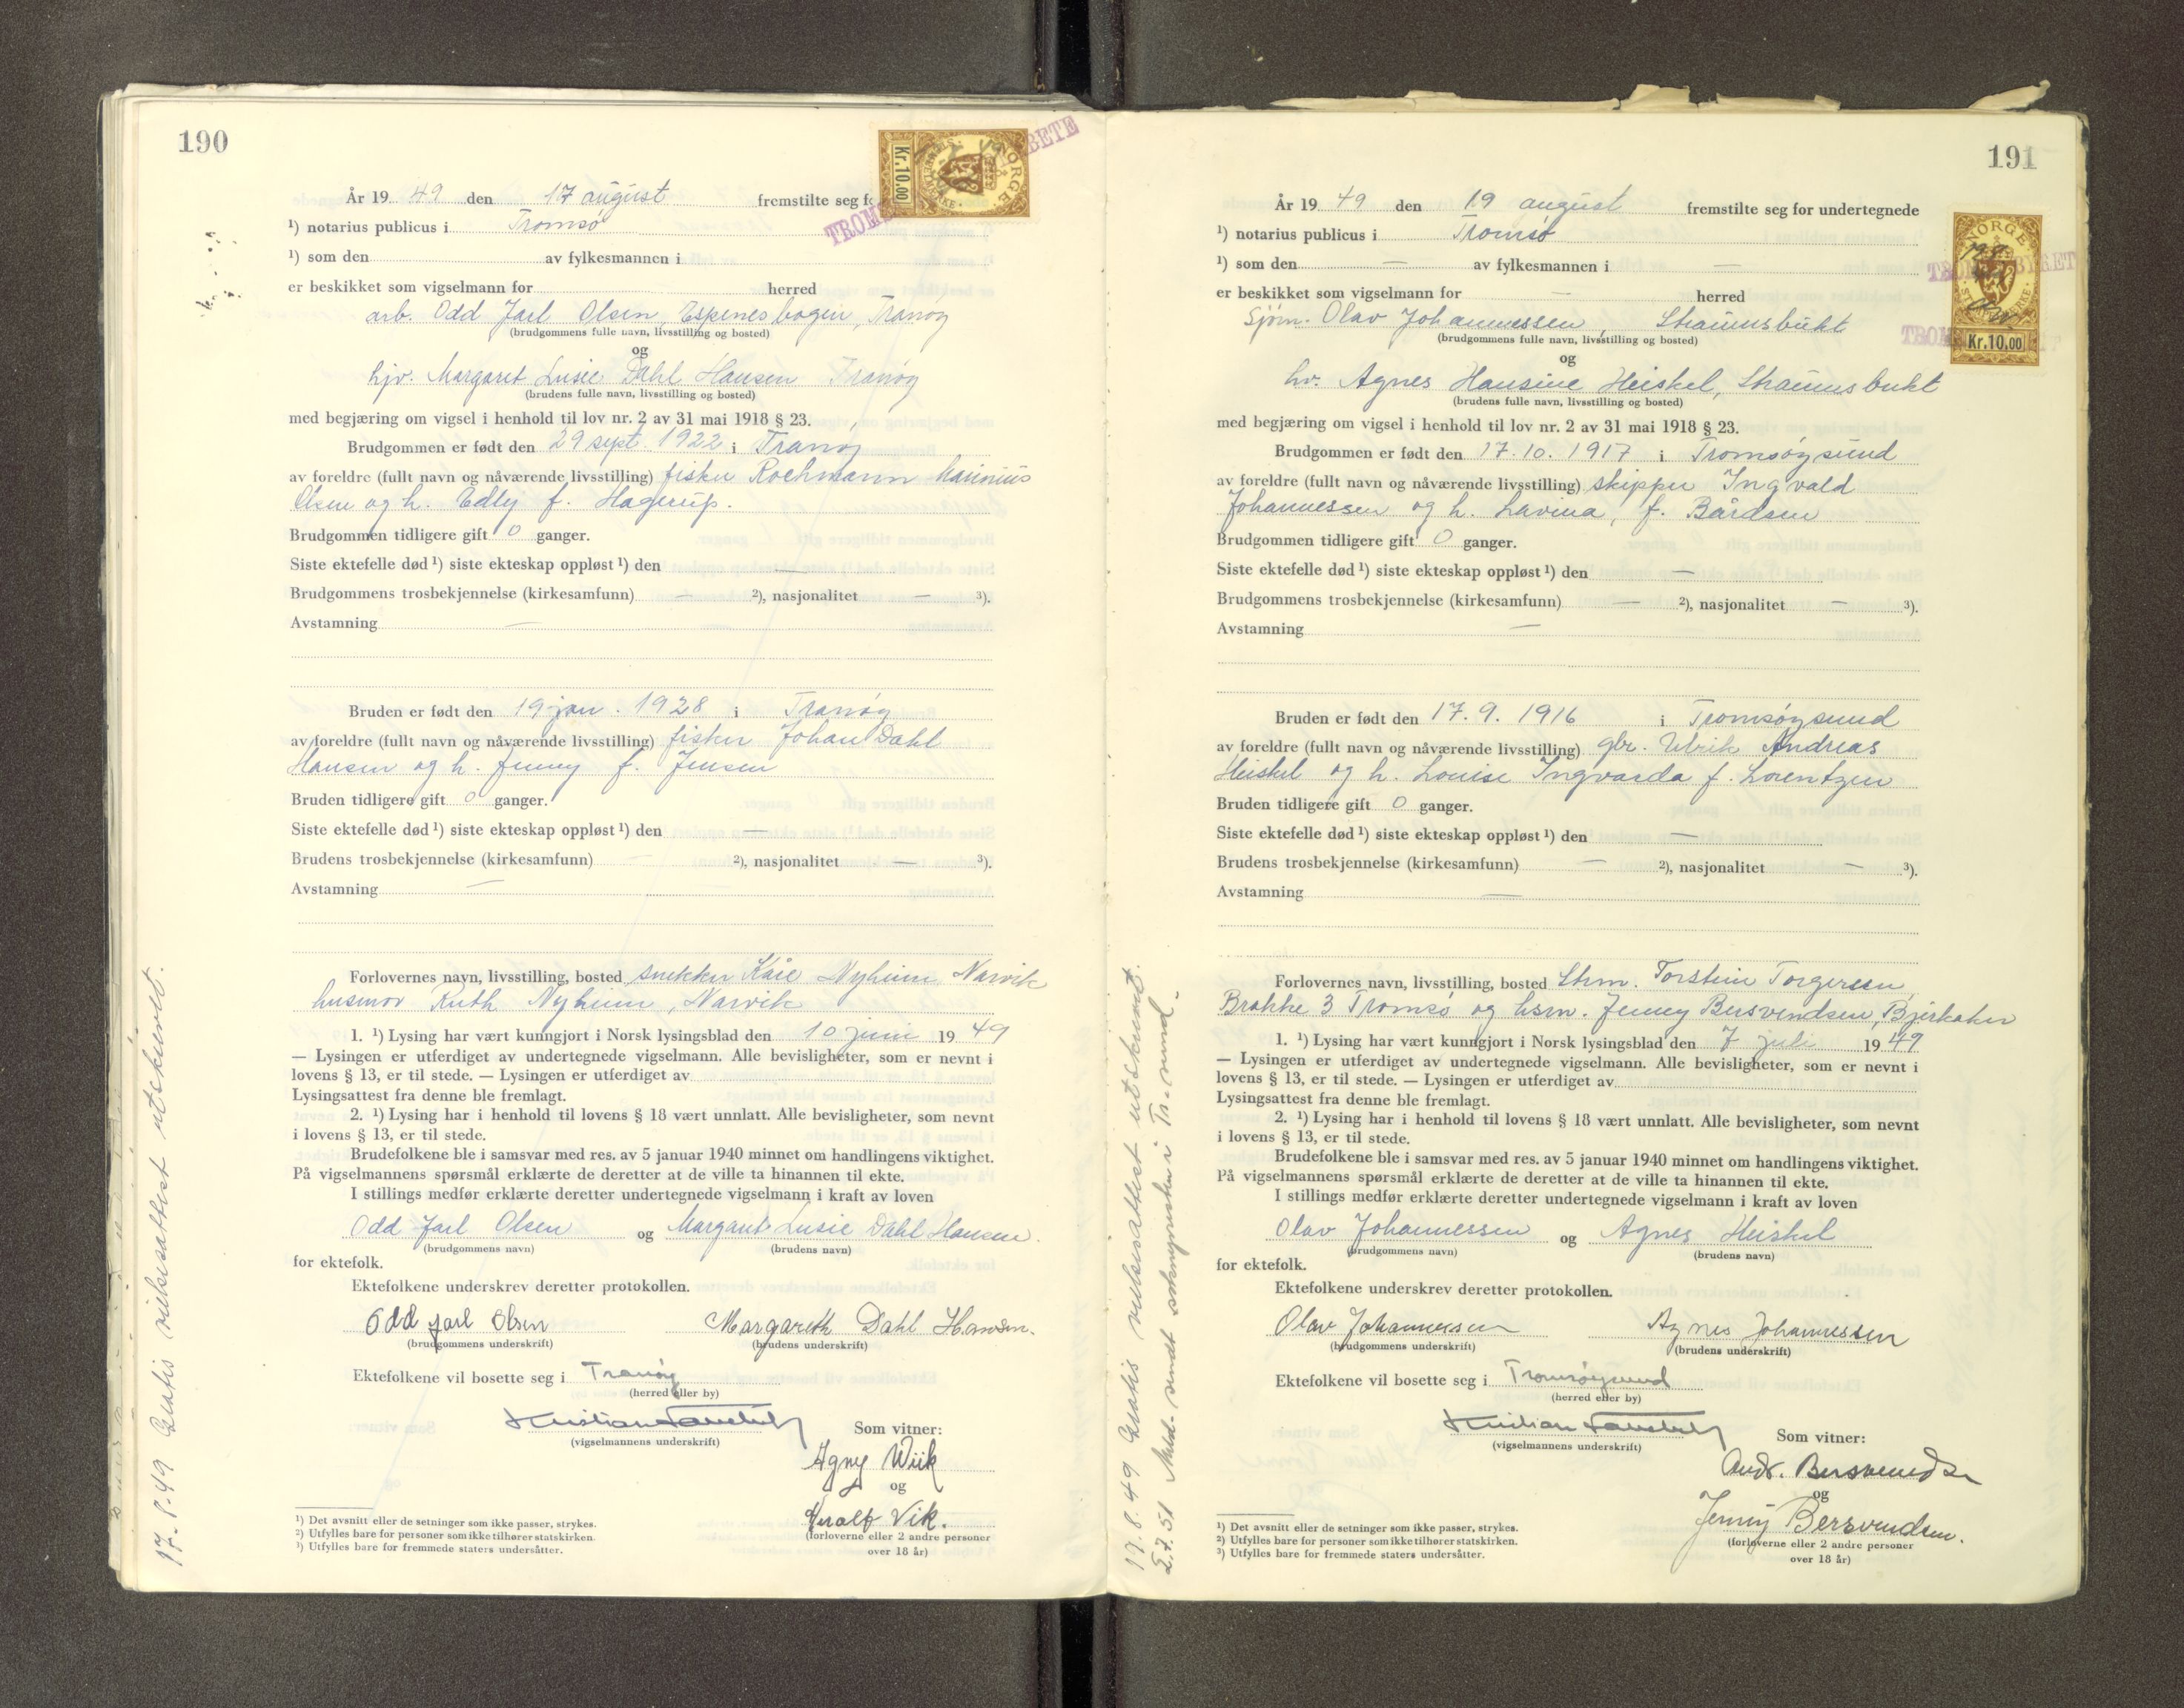 190
År 19 49 den 17 august fremstilte seg f
¹) notarius publicus i Tromsø
¹) som den av fylkesmannen i
er beskikket som vigselmann for herred
arb. Odd Jarl Olsen, Espenesbogen, Tranøy
(brudgommens fulle navn, livsstilling og bosted)
og
hjv. Margaret Lusie Dahl Hansen Tranøy
(brudens fulle navn, livsstilling og bosted)
med begjæring om vigsel i henhold til lov nr. 2 av 31 mai 1918 § 23.
Brudgommen er født den 29 sept. 1922 i Tranøy
av foreldre (fullt navn og nåværende livsstilling) fisker Rochmann
Olsen og h. Edly f. Hagerup.
Brudgommen tidligere gift 0 ganger.
Siste ektefelle død ¹) siste ekteskap oppløst ¹) den —
Brudgommens trosbekjennelse (kirkesamfunn) — ²), nasjonalitet — ³).
Avstamning —
Bruden er født den 19 jan. 1928 i Tranøy
av foreldre (fullt navn og nåværende livsstilling) fisker Johan Dahl
Hansen og h. Jenny f. Jensen
Bruden tidligere gift 0 ganger.
Siste ektefelle død ¹) siste ekteskap oppløst ¹) den —
Brudens trosbekjennelse (kirkesamfunn) — ²), nasjonalitet — ³).
Avstamning —
Forlovernes navn, livsstilling, bosted snekker Kåre Nyheim Narvik
husmor Ruth Nyheim, Narvik
1. ¹) Lysing har vært kunngjort i Norsk lysingsblad den 10 juni 19 49
— Lysingen er utferdiget av undertegnede vigselmann. Alle bevisligheter, som er nevnt i
lovens § 13, er til stede. — Lysingen er utferdiget av
Lysingsattest fra denne ble fremlagt.
2. ¹) Lysing har i henhold til lovens § 18 vært unnlatt. Alle bevisligheter, som nevnt
i lovens § 13, er til stede.
Brudefolkene ble i samsvar med res. av 5 januar 1940 minnet om handlingens viktighet.
På vigselmannens spørsmål erklærte de deretter at de ville ta hinannen til ekte.
I stillings medfør erklærte deretter undertegnede vigselmann i kraft av loven
Odd Jarl Olsen og Margaret Lusie Dahl Hansen.
(brudgommens navn) (brudens navn)
for ektefolk.
Ektefolkene underskrev deretter protokollen.
Odd Jarl Olsen Margareth Dahl Hansen.
(brudgommens underskrift) (brudens underskrift)
Ektefolkene vil bosette seg i Tranøy
(herred eller by)
Kristian
(vigselmannens underskrift)
Som vitner:
Agny Wiik
og
Vik.
(forloverne eller 2 andre personer
over 18 år)
¹) Det avsnitt eller de setninger som ikke passer, strykes.
²) Utfylles bare for personer som ikke tilhører statskirken.
³) Utfylles bare for fremmede staters undersåtter.
17.8.49 Gratis vielsesattest utskrevet.
NORGE
Kr.10.00
191
År 19 49 den 19 august fremstilte seg for undertegnede
¹) notarius publicus i Tromsø
¹) som den — av fylkesmannen i —
er beskikket som vigselmann for — herred
Sjøm. Olav Johannessen, Straumsbukt
(brudgommens fulle navn, livsstilling og bosted)
og
hv. Agnes Hansine Heiskel, Straumsbukt
(brudens fulle navn, livsstilling og bosted)
med begjæring om vigsel i henhold til lov nr. 2 av 31 mai 1918 § 23.
Brudgommen er født den 17.10.1917 i Tromsøysund
av foreldre (fullt navn og nåværende livsstilling) skipper Ingvald
Johannessen og h. Lavina, f. Bårdsen
Brudgommen tidligere gift 0 ganger.
Siste ektefelle død ¹) siste ekteskap oppløst ¹) den —
Brudgommens trosbekjennelse (kirkesamfunn) — ²), nasjonalitet — ³).
Avstamning —
Bruden er født den 17.9.1916 i Tromsøysund
av foreldre (fullt navn og nåværende livsstilling) gbr. Ulrik Andreas
Heiskel og h. Louise Ingvarda f. Lorentzen
Bruden tidligere gift 0 ganger.
Siste ektefelle død ¹) siste ekteskap oppløst ¹) den —
Brudens trosbekjennelse (kirkesamfunn) — ²), nasjonalitet — ³).
Avstamning —
Forlovernes navn, livsstilling, bosted Strm. Torstein Torgersen,
Brakke 3 Tromsø og hsm. Jenny Bersvendsen, Bjerkaker
1. ¹) Lysing har vært kunngjort i Norsk lysingsblad den 7 juli 19 49
— Lysingen er utferdiget av undertegnede vigselmann. Alle bevisligheter, som er nevnt i
lovens § 13, er til stede. — Lysingen er utferdiget av
Lysingsattest fra denne ble fremlagt.
2. ¹) Lysing har i henhold til lovens § 18 vært unnlatt. Alle bevisligheter, som nevnt
i lovens § 13, er til stede.
Brudefolkene ble i samsvar med res. av 5 januar 1940 minnet om handlingens viktighet.
På vigselmannens spørsmål erklærte de deretter at de ville ta hinannen til ekte.
I stillings medfør erklærte deretter undertegnede vigselmann i kraft av loven
Olav Johannessen og Agnes Heiskel
(brudgommens navn) (brudens navn)
for ektefolk.
Ektefolkene underskrev deretter protokollen.
Olav Johannessen Agnes Johannessen
(brudgommens underskrift) (brudens underskrift)
Ektefolkene vil bosette seg i Tromsøysund
(herred eller by)
Kristian
(vigselmannens underskrift)
Som vitner:
Andr. Bersvendsen
og
Jenny Bersvendsen.
(forloverne eller 2 andre personer
over 18 år)
¹) Det avsnitt eller de setninger som ikke passer, strykes.
²) Utfylles bare for personer som ikke tilhører statskirken.
³) Utfylles bare for fremmede staters undersåtter.
17.8.49 Gratis vielsesattest utskrevet.
2.7.51 Meld. sendt soknepresten i Tr.sund.
NORGE
Kr.10.00